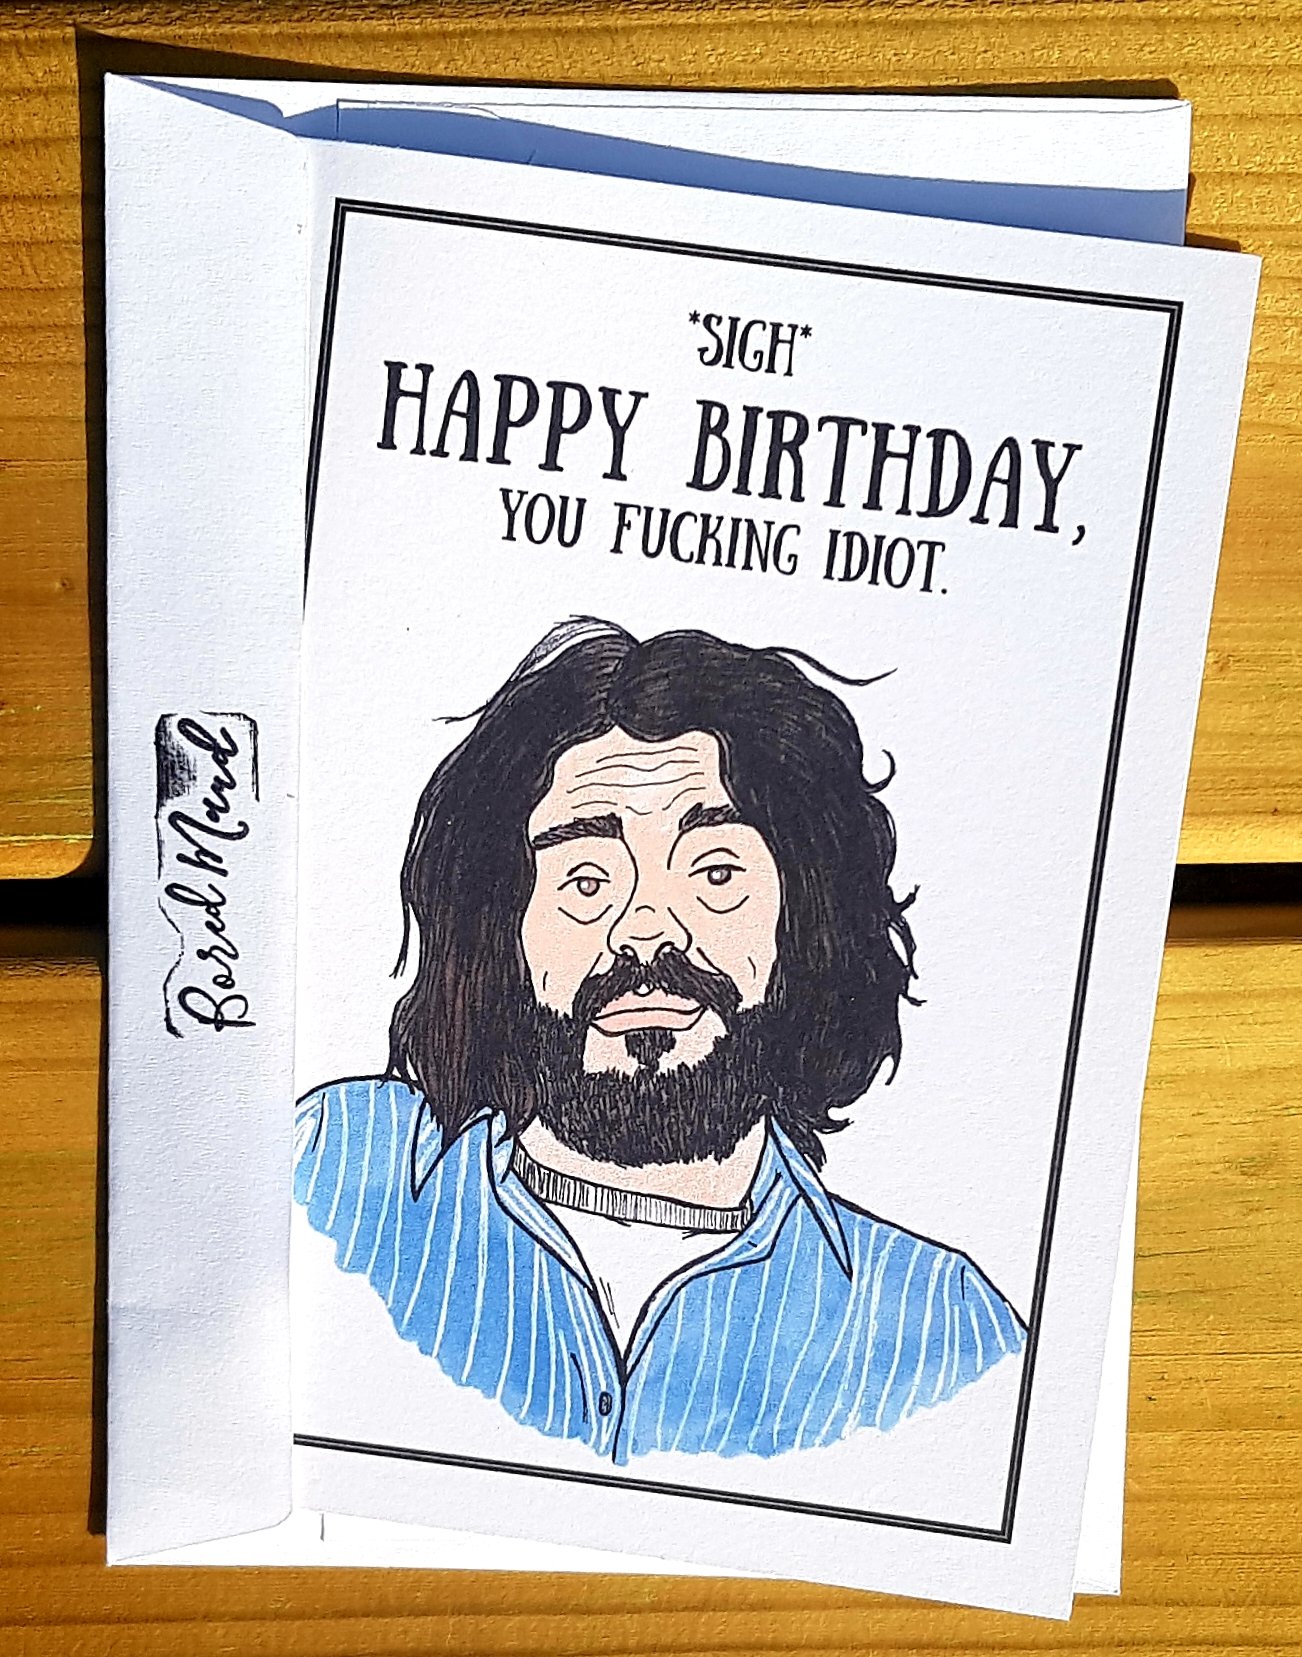 *SIGH*
HAPPY BIRTHDAY,
YOU FUCKING IDIOT.
Bored Mund